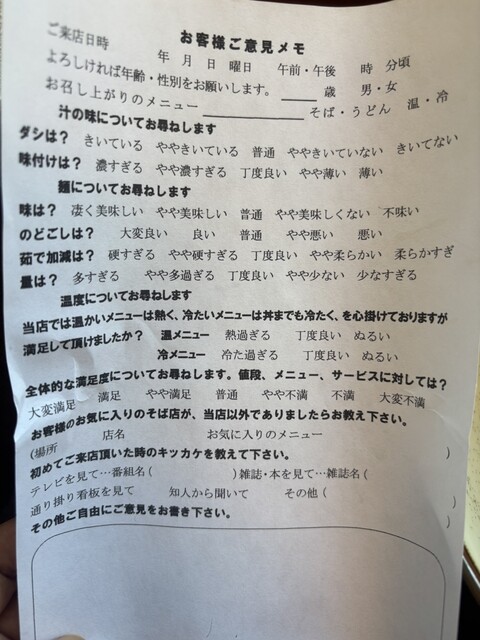 お客様ご意見メモ
ご来店日時 年 月 日 曜日 午前・午後 時 分頃
よろしければ年齢・性別をお願いします。 ＿＿ 歳 男・女
お召し上がりのメニュー ＿＿＿＿＿＿ そば・うどん 温・冷
汁の味についてお尋ねします
ダシは? きいている ややきいている 普通 ややきいていない きいてない
味付けは? 濃すぎる やや濃すぎる 丁度良い やや薄い 薄い
麺についてお尋ねします
味は? 凄く美味しい やや美味しい 普通 やや美味しくない 不味い
のどごしは? 大変良い 良い 普通 やや悪い 悪い
茹で加減は? 硬すぎる やや硬すぎる 丁度良い やや柔らかい 柔らかすぎ
量は? 多すぎる やや多過ぎる 丁度良い やや少ない 少なすぎる
温度についてお尋ねします
当店では温かいメニューは熱く、冷たいメニューは丼までも冷たく、を心掛けておりますが
満足して頂けましたか? 温メニュー 熱過ぎる 丁度良い ぬるい
冷メニュー 冷た過ぎる 丁度良い ぬるい
全体的な満足度についてお尋ねします。値段、メニュー、サービスに対しては?
大変満足 満足 やや満足 普通 やや不満 不満 大変不満
お客様のお気に入りのそば店が、当店以外でありましたらお教え下さい。
(場所 店名 お気に入りのメニュー )
初めてご来店頂いた時のキッカケを教えて下さい。
テレビを見て…番組名( )雑誌・本を見て…雑誌名( )
通り掛り看板を見て 知人から聞いて その他( )
その他ご自由にご意見をお書き下さい。